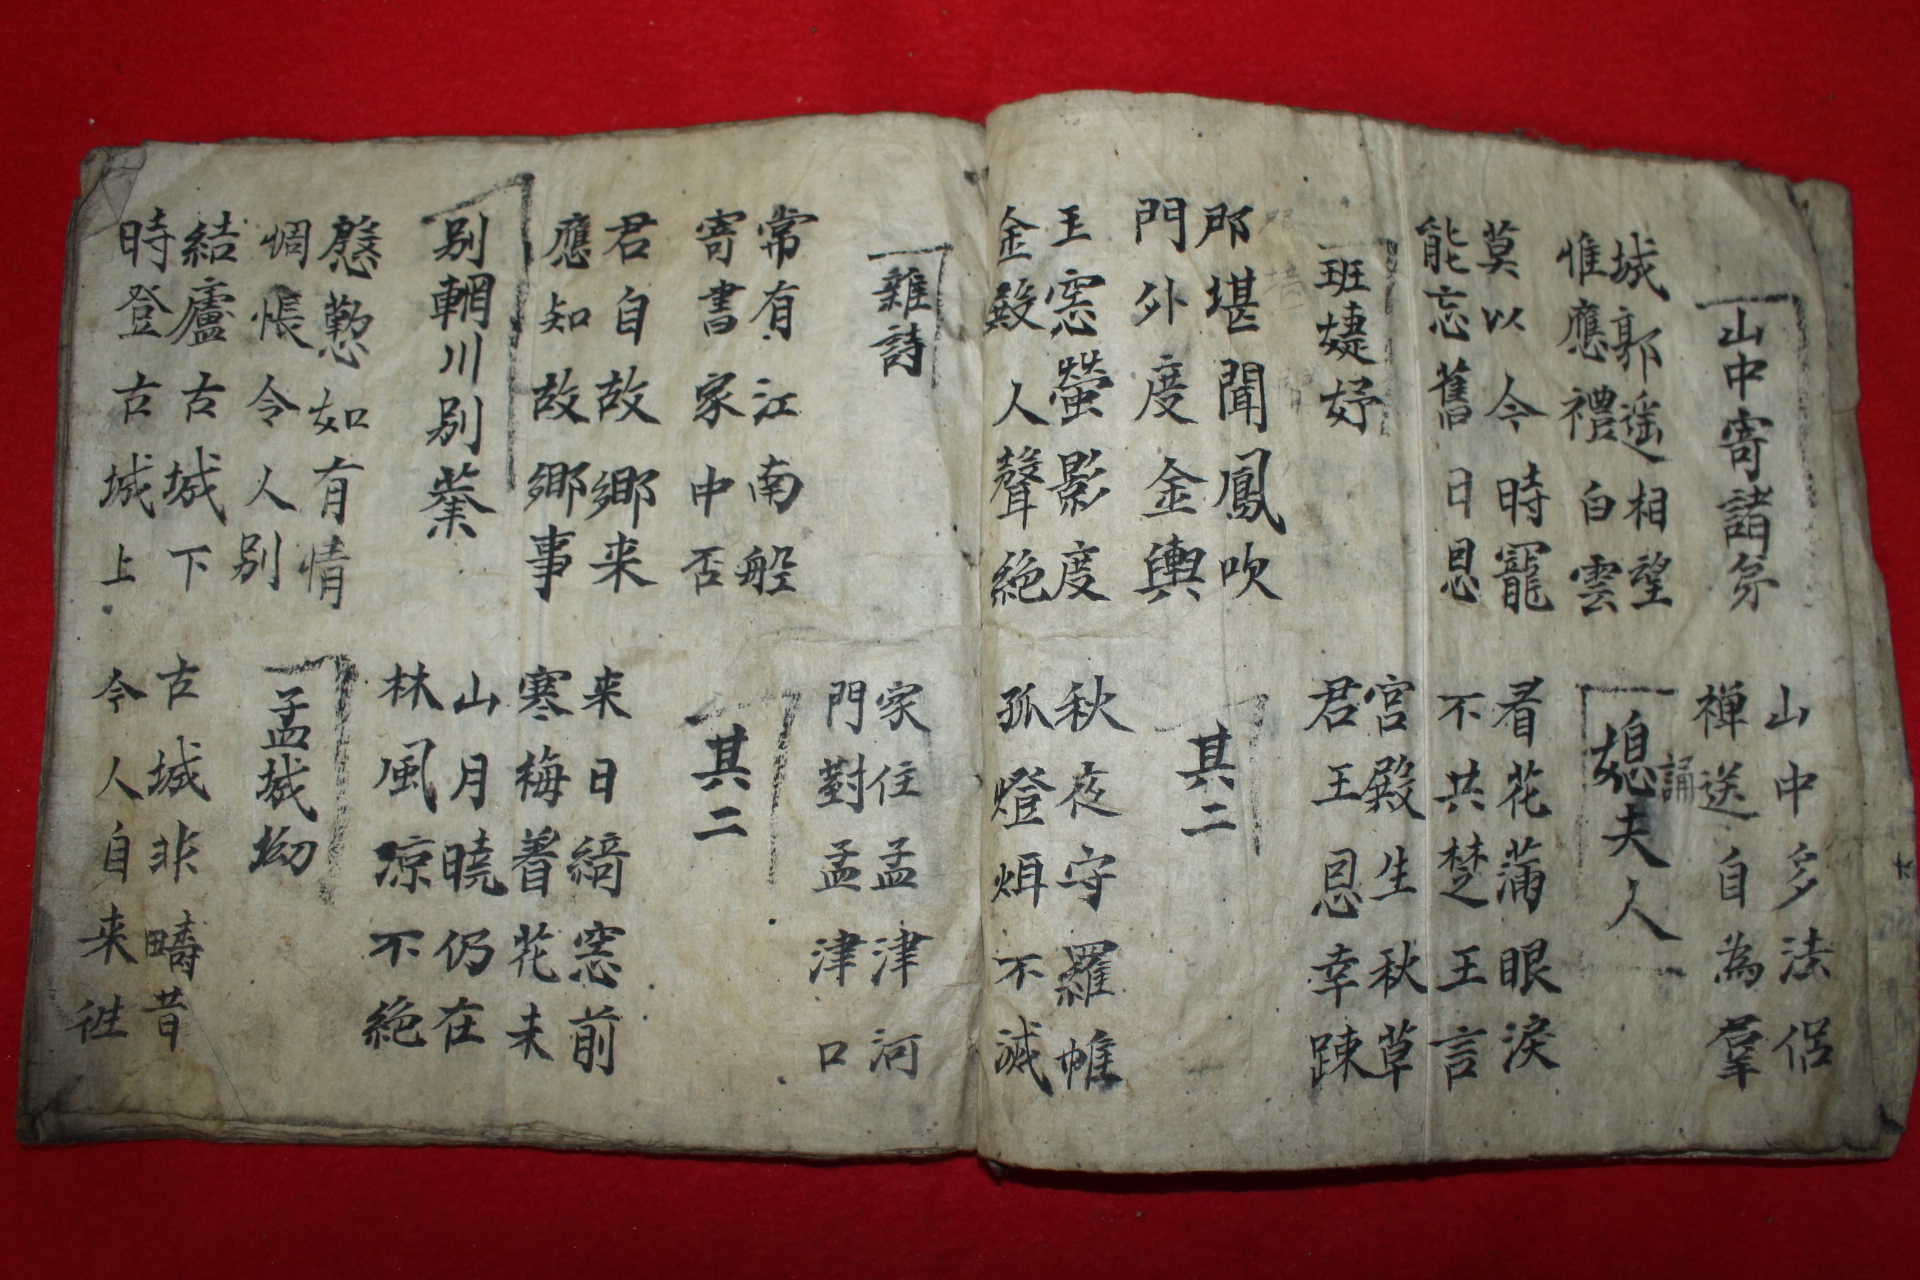 山中寄諸弟
山中多法侶
禅送自為羣
誦
城郭遥相望
惟應禮白雲
媳夫人
莫以今時寵
能忘舊日恩
看花滿眼淚
不共楚王言
班婕妤
宮殿生秋草
君王恩幸踈
那堪聞鳳吹
門外度金輿
其二
玉窓螢影度
金殿人聲絶
秋夜守羅帷
孤燈烜不滅
雜詩
家住孟津河
門對孟津口
常有江南船
寄書家中否
其二
君自故鄉来
應知故鄉事
来日綺窓前
寒梅着花未
別輞川別業
山月曉仍在
林風凉不絶
慇懃如有情
惆悵令人別
孟城坳
結廬古城下
時登古城上
古城非疇昔
今人自来徃